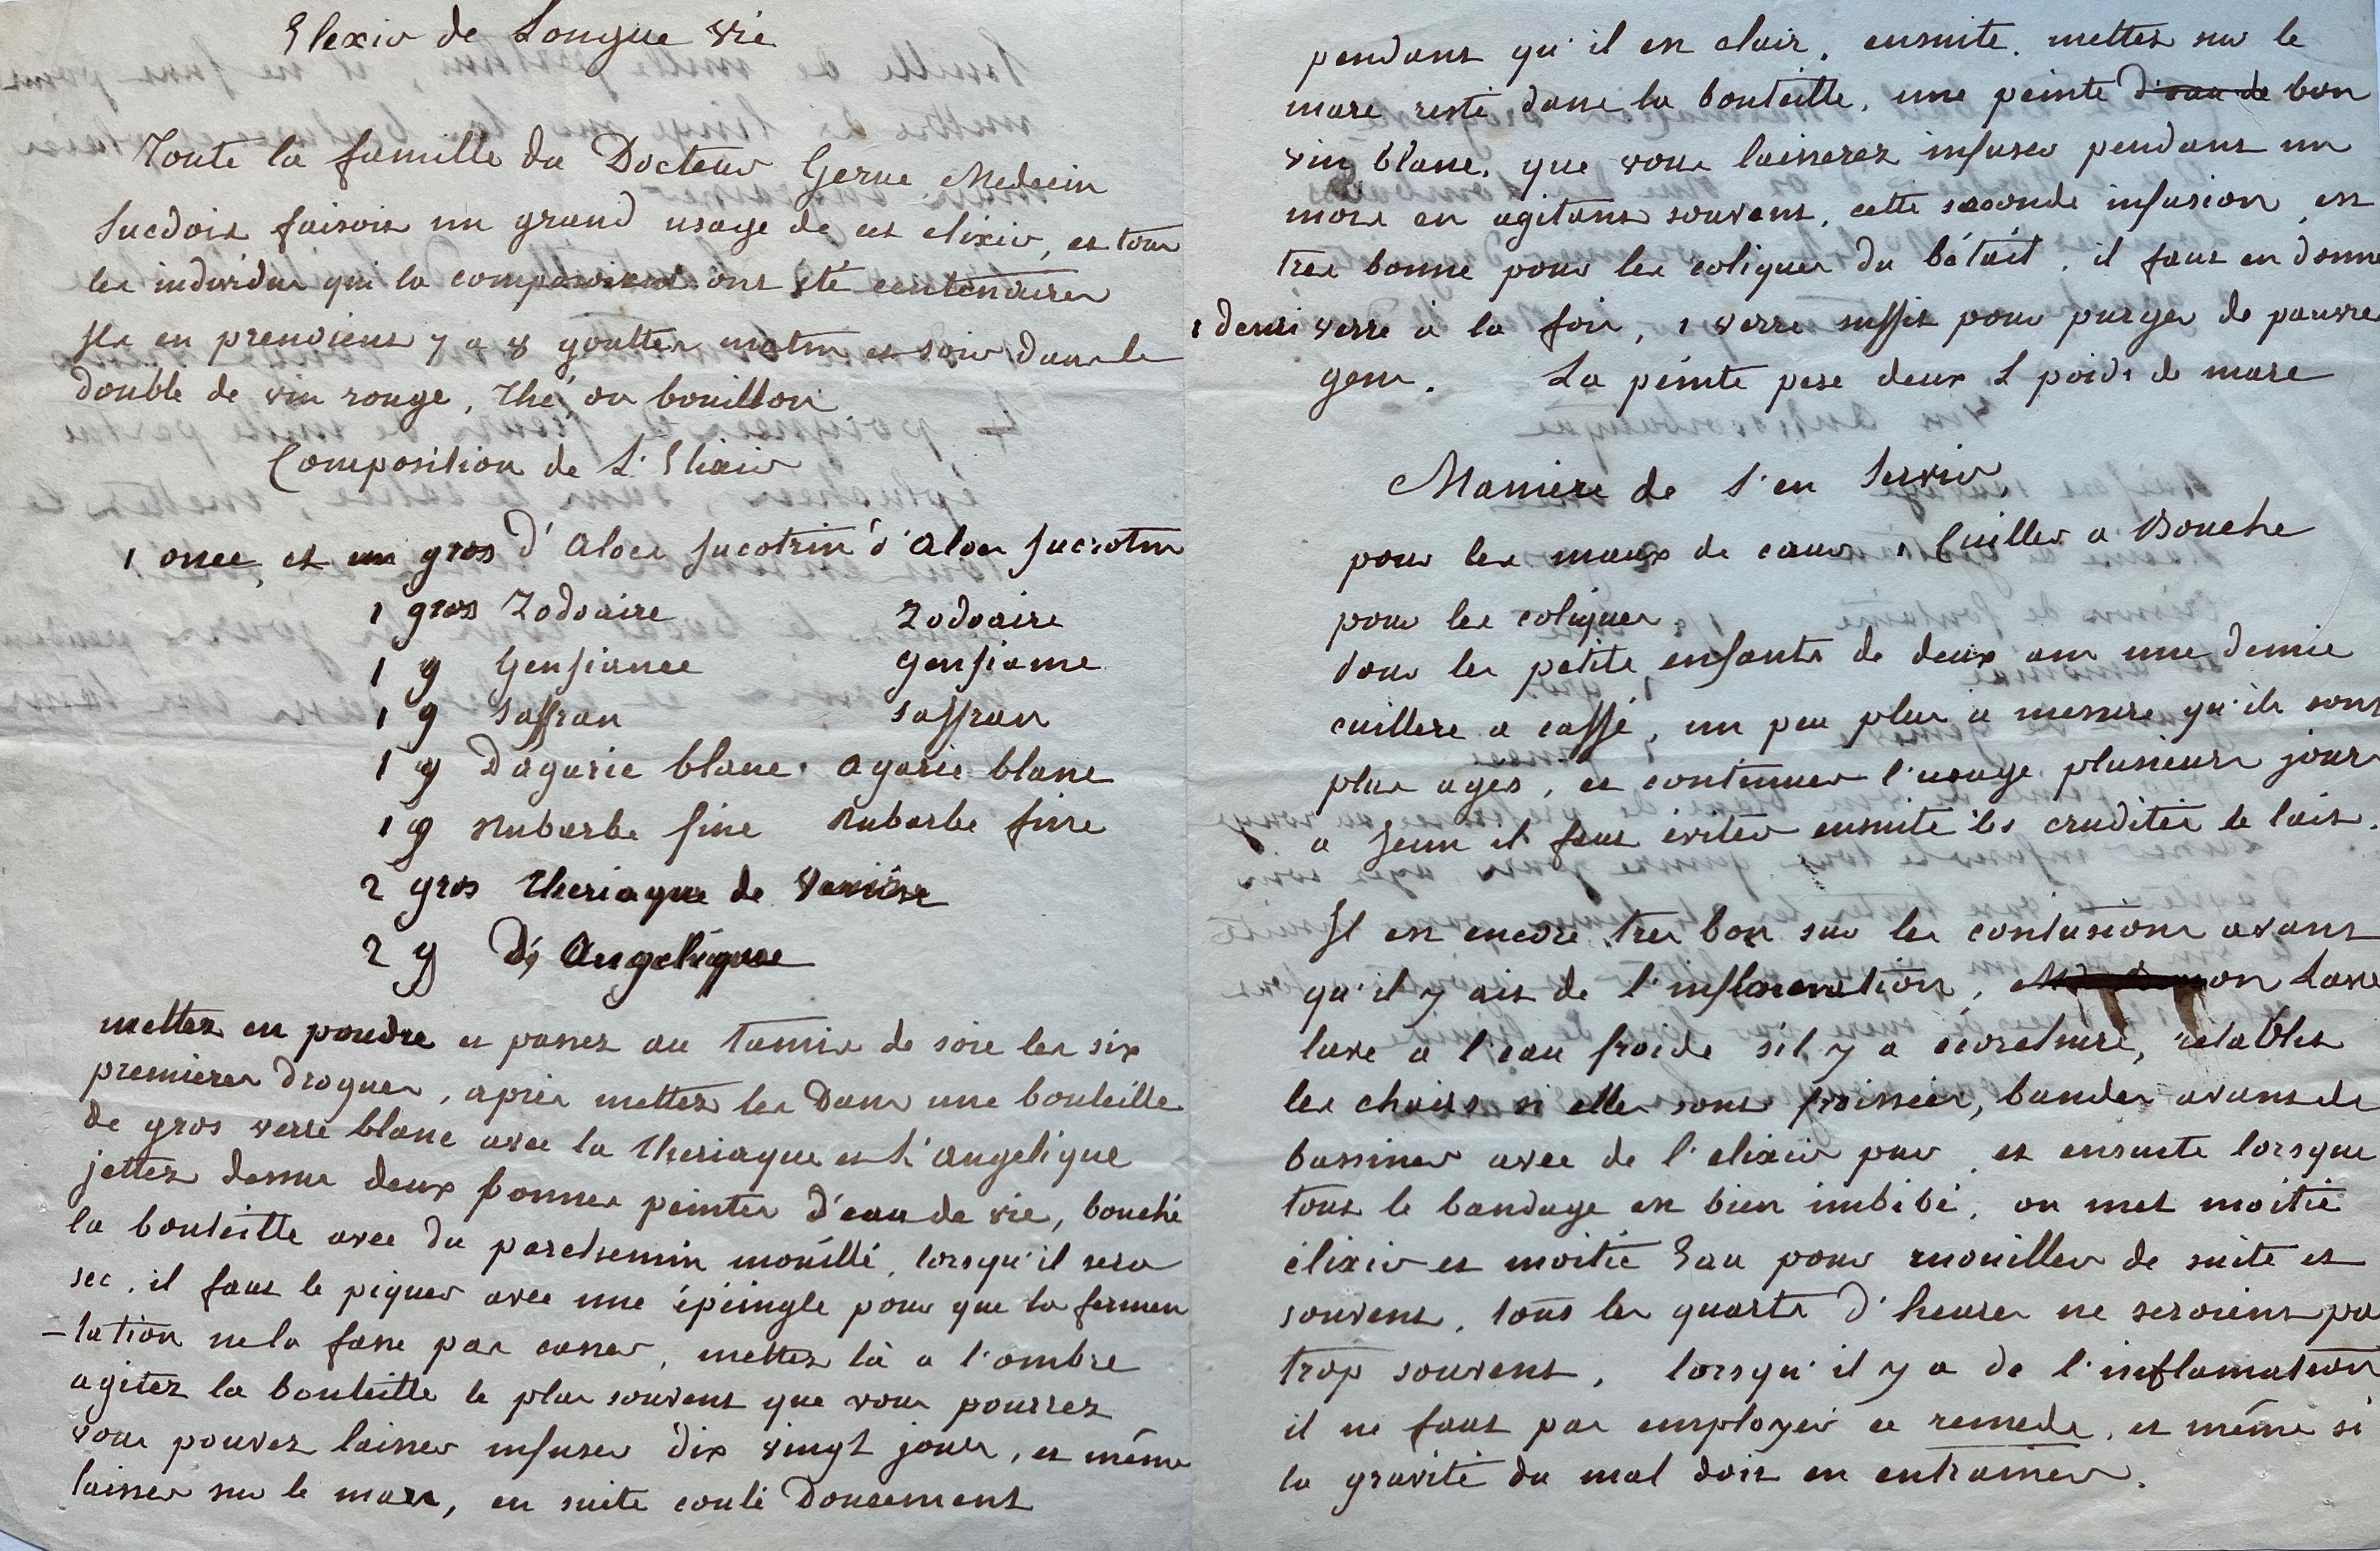 Elexir de Longue vie
Toute la famille du Docteur Gerne Medecin
Suedois faisoit un grand usage de cet elixir, et tous
les individus qui la composoient ont été centenaires
Ils en prenoient 7 a 8 gouttes matin et soir dans le
double de vin rouge, thé, ou bouillon
Composition de L'Elixir
1 once, et un gros d'Aloes sucotrin d'Aloes sucrotin
1 gros Zodoaire Zodoaire
1 g Gensianee gensiane
1 g saffran saffran
1 g D'agaric blanc. agaric blanc
1 g Rubarbe fine Rubarbe fine
2 gros theriaque de Venise
2 g D'Angelique
mettez en poudre et passez au tamis de soie les six
premieres drogues, apres mettez les dans une bouteille
de gros verre blanc avec la theriaque et L'angelique
jettez dessus deux bonnes peintes d'eau de vie, bouché
la bouteille avec du parchemin mouillé, lorsqu'il sera
sec, il faut le piquer avec une épeingle pour que la fermen
-tation ne la fasse pas casser, mettez là a l'ombre
agitez la bouteille le plus souvent que vous pourrez
vous pouvez laisser infuser dix vingt jours, et même
laisser sur le marc, en suite coulé doucement
pendant qu'il est clair, ensuite. mettez sur le
marc resté dans la bouteille, une peinte d'eau de bon
vin blanc, que vous laisserez infuser pendant un
mois en agitant souvent, cette seconde infusion est
tres bonne pour les coliques du bétail, il faut en donne
1 demi verre a la fois, 1 verre suffit pour purger de pauvres
gens. La peinte pese deux L poids de marc
Maniere de s'en servir,
pour les maux de cœur 1 Cuiller a Bouche
pour les coliques
pour les petits enfants de deux ans une demie
cuillere a caffé, un peu plus a mesure qu'ils sont
plus agés, et continuer l'usage plusieurs jours
a jeun il faut eviter ensuite les crudités le lait.
Il est encore tres bon sur les contusions avant
qu'il y ait de l'inflamation, on Lave
lave a l'eau froide s'il y a écorchure, retablis
les chairs si elles sont froissées, bander avant de
bassiner avec de l'elixir pur, et ensuite lorsque
tout le bandage est bien imbibé, on met moitié
élixir et moitié Eau pour mouiller de suite et
souvent, tous les quarts d'heures ne seroient pa
trop souvent, lorsqu'il y a de l'inflamation
il ne faut pas employer ce remede, et même si
la gravité du mal doit en entrainer.